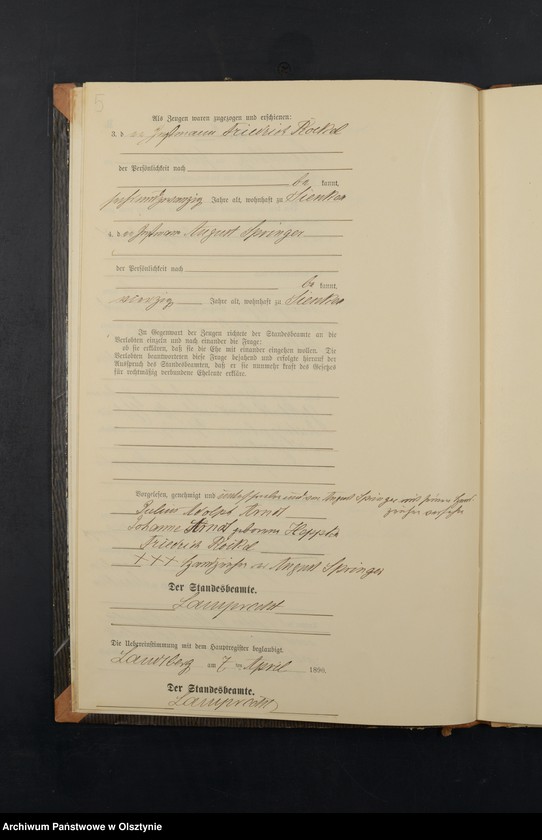 Als Zeugen waren zugezogen und erschienen:
3. der Instmann Friedrich Röckel
der Persönlichkeit nach
be kannt,
sechsundzwanzig Jahre alt, wohnhaft zu Sienken
4. der Instmann August Springer
der Persönlichkeit nach
be kannt,
vierzig Jahre alt, wohnhaft zu Sienken
In Gegenwart der Zeugen richtete der Standesbeamte an die
Verlobten einzeln und nach einander die Frage:
ob sie erklären, daß sie die Ehe mit einander eingehen wollen. Die
Verlobten beantworteten diese Frage bejahend und erfolgte hierauf der
Ausspruch des Standesbeamten, daß er sie nunmehr kraft des Gesetzes
für rechtmäßig verbundene Eheleute erkläre.
Vorgelesen, genehmigt und unterschrieben und von August Springer mit seinem Hand
zeichen versehen
Adolph Arndt
Johanne Arndt geborene
Friedrich Röckel
+++ Handzeichen des August Springer
Der Standesbeamte.
Lamprecht
Die Uebereinstimmung mit dem Hauptregister beglaubigt.
Landsberg am 7. ten April 1890.
Der Standesbeamte.
Lamprecht
Archiwum Państwowe w Olsztynie